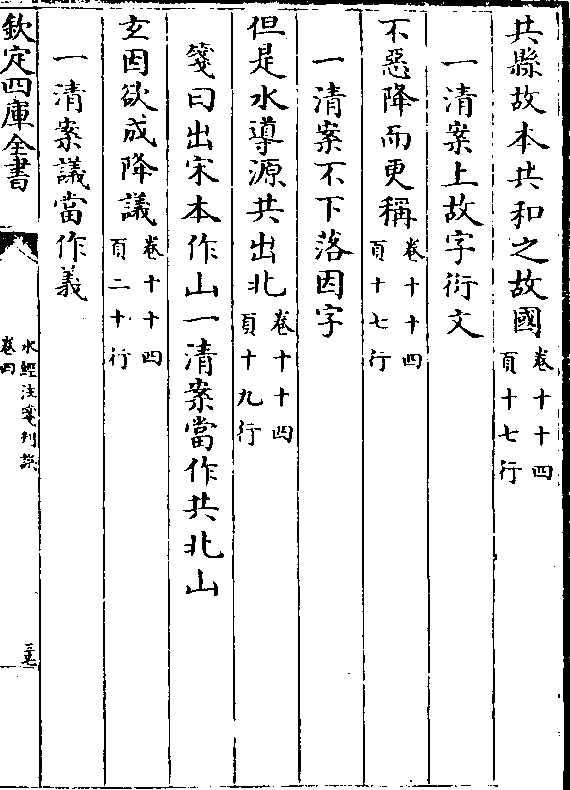 共縣故本共和之故國卷十十四頁十七行
一清案上故字衍文
不惡降而更稱卷十十四頁十七行
一清案不下落因字
但是水導源共出北卷十十四頁十九行
箋曰出宋本作山一清案當作共北山
玄酉欲成降議卷十十四頁二十行
一清案議當作義
欽定四庫全書
水經注箋刊誤
卷四